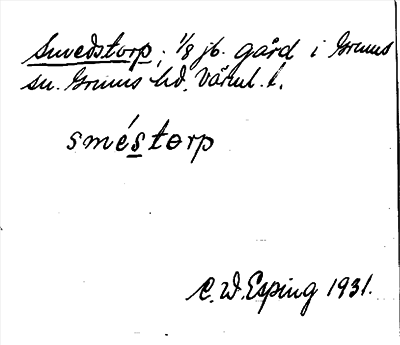 Smedstorp; 1/8 jb. gård i Grums
sn. Grums hd, Värml. l.
smé̱storp
C. W. Esping 1931.